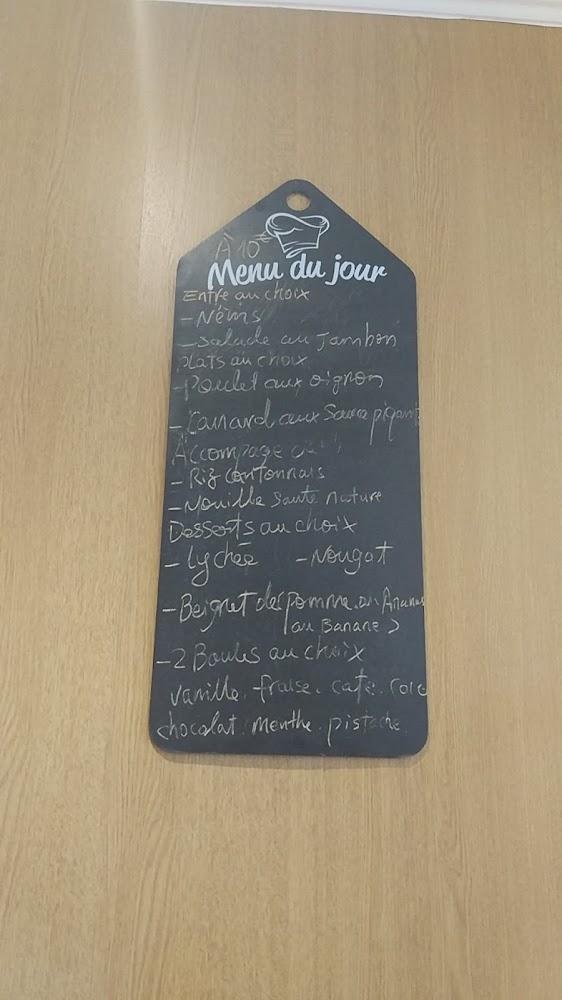 À 10€
Menu du jour
Entre au choix
- Néms
- Salade au Jambon
plats au choix
- Poulet aux oignon
- Canard aux Sauce piquant
Accompage
- Riz contonnais
- Nouille Sauté nature
Desserts au choix
- Lychée - Nougat
- Beignet de (pomme. ou Ananas
ou Banane)
- 2 Boules au choix
vanille. fraise. café. coco
chocolat. menthe. pistache.